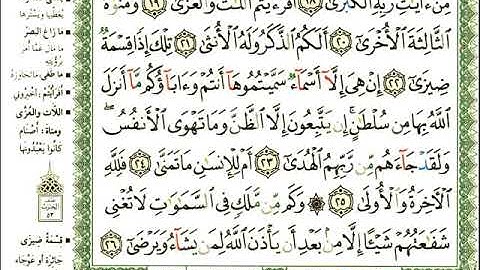 مِنْ ءَايَٰتِ رَبِّهِ ٱلْكُبْرَىٰٓ ١٨ أَفَرَءَيْتُمُ ٱللَّٰتَ وَٱلْعُزَّىٰ ١٩ وَمَنَوٰةَ
ٱلثَّالِثَةَ ٱلْأُخْرَىٰٓ ٢٠ أَلَكُمُ ٱلذَّكَرُ وَلَهُ ٱلْأُنثَىٰ ٢١ تِلْكَ إِذًا قِسْمَةٌ
ضِيزَىٰٓ ٢٢ إِنْ هِىَ إِلَّآ أَسْمَآءٌ سَمَّيْتُمُوهَآ أَنتُمْ وَءَابَآؤُكُم مَّآ أَنزَلَ
ٱللَّهُ بِهَا مِن سُلْطَٰنٍ ۚ إِن يَتَّبِعُونَ إِلَّا ٱلظَّنَّ وَمَا تَهْوَى ٱلْأَنفُسُ ۖ
وَلَقَدْ جَآءَهُم مِّن رَّبِّهِمُ ٱلْهُدَىٰٓ ٢٣ أَمْ لِلْإِنسَٰنِ مَا تَمَنَّىٰ ٢٤ فَلِلَّهِ
ٱلْءَاخِرَةُ وَٱلْأُولَىٰ ٢٥ ۞ وَكَم مِّن مَّلَكٍ فِى ٱلسَّمَٰوَٰتِ لَا تُغْنِى
شَفَٰعَتُهُمْ شَيْـًٔا إِلَّا مِنۢ بَعْدِ أَن يَأْذَنَ ٱللَّهُ لِمَن يَشَآءُ وَيَرْضَىٰٓ ٢٦
يُغَطِّيهَا وَيَسْتُرُهَا
■ مَا زَاغَ الْبَصَرُ
■ مَا طَغَى
أَفَرَأَيْتُمْ: أَخْبِرُونِي
■ اللَّاتَ وَالْعُزَّى
وَمَنَاةَ: أَصْنَامٌ
كَانُوا يَعْبُدُونَهَا
٥٣
■ قِسْمَةٌ ضِيزَى
جَائِرَةٌ أَوْ عَوْجَاء